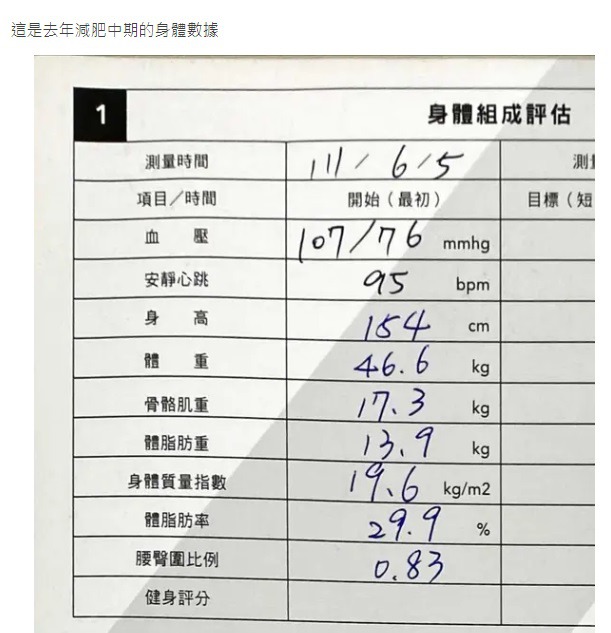 這是去年減肥中期的身體數據
1 身體組成評估
測量時間 111/6/5 測
項目／時間 開始（最初） 目標（短
血壓 107/76 mmhg
安靜心跳 95 bpm
身高 154 cm
體重 46.6 kg
骨骼肌重 17.3 kg
體脂肪重 13.9 kg
身體質量指數 19.6 kg/m2
體脂肪率 29.9 %
腰臀圍比例 0.83
健身評分